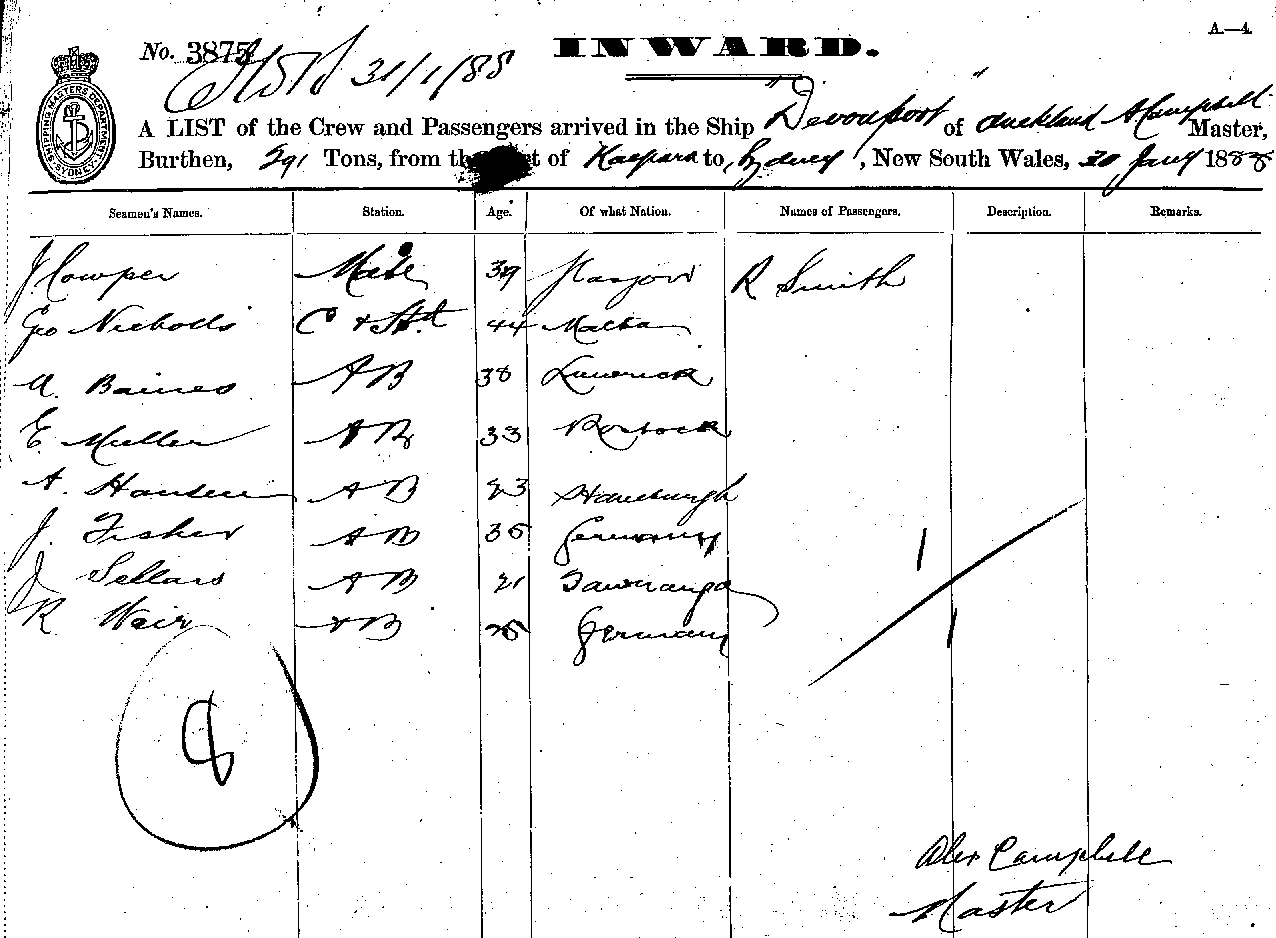 A.—4.
No. 3875
INWARD.
31/1/88
SHIPPING MASTERS DEPARTMENT SYDNEY
A LIST of the Crew and Passengers arrived in the Ship "Devonport" of Auckland A Campbell Master,
Burthen, 291 Tons, from the of Kaipara to, Sydney, New South Wales, 30 Jany 1888
Seamen's Names. Station. Age. Of what Nation. Names of Passengers. Description. Remarks.
J Cowper Mate 39 Glasgow R Smith
Geo Nicholls C & Std 44 Malta
A. Baines AB 38 Limerick
E. Muller AB 33 Rostock
A. Hansen AB 23 Hamburgh
J. Fisher AB 35 Germany
J Sellars AB 21 Tawranga
R Weir AB 25 Germany
1
1
8
Alex Campbell
Master